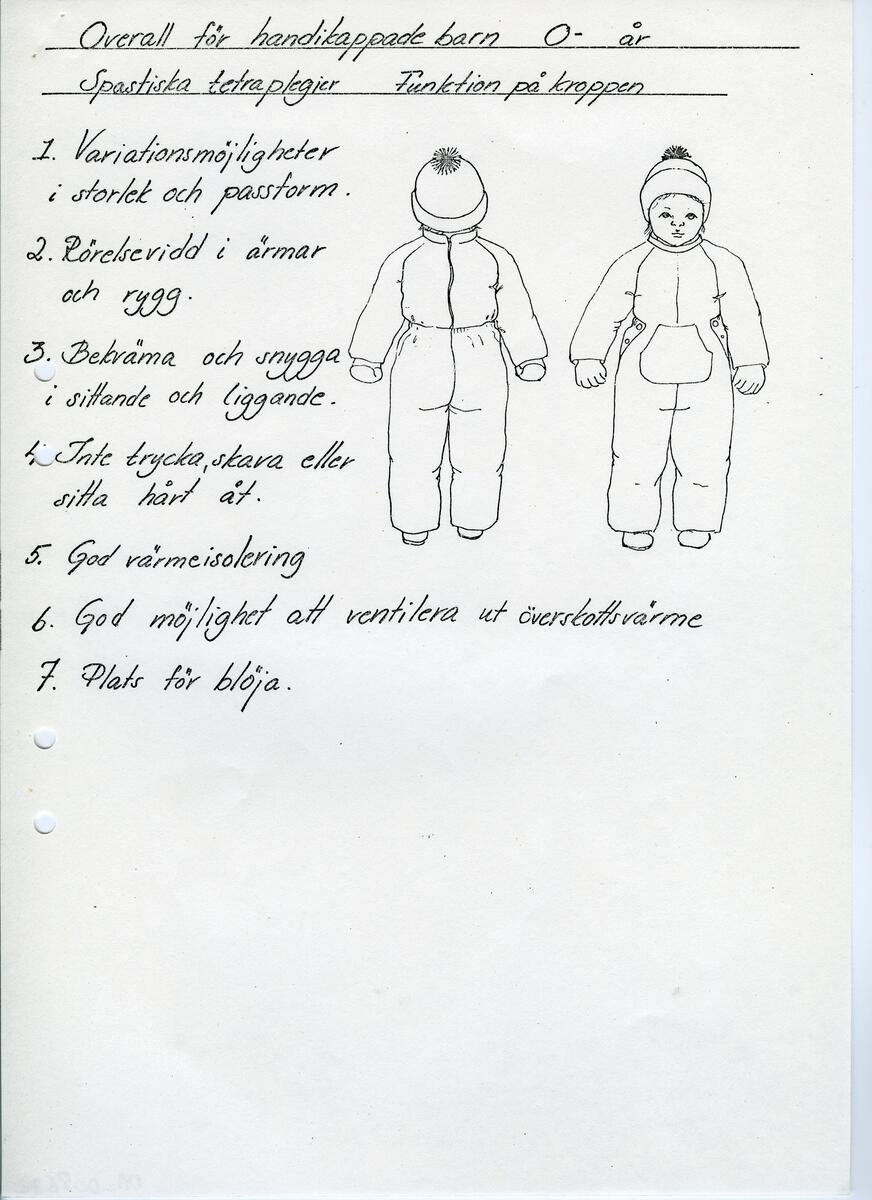 Overall för handikappade barn 0- år
Spastiska tetraplegier Funktion på kroppen
1. Variationsmöjligheter
i storlek och passform.
2. Rörelsevidd i ärmar
och rygg.
3. Bekväma och snygga
i sittande och liggande.
4. Inte trycka, skava eller
sitta hårt åt.
5. God värmeisolering
6. God möjlighet att ventilera ut överskottsvärme
7. Plats för blöja.